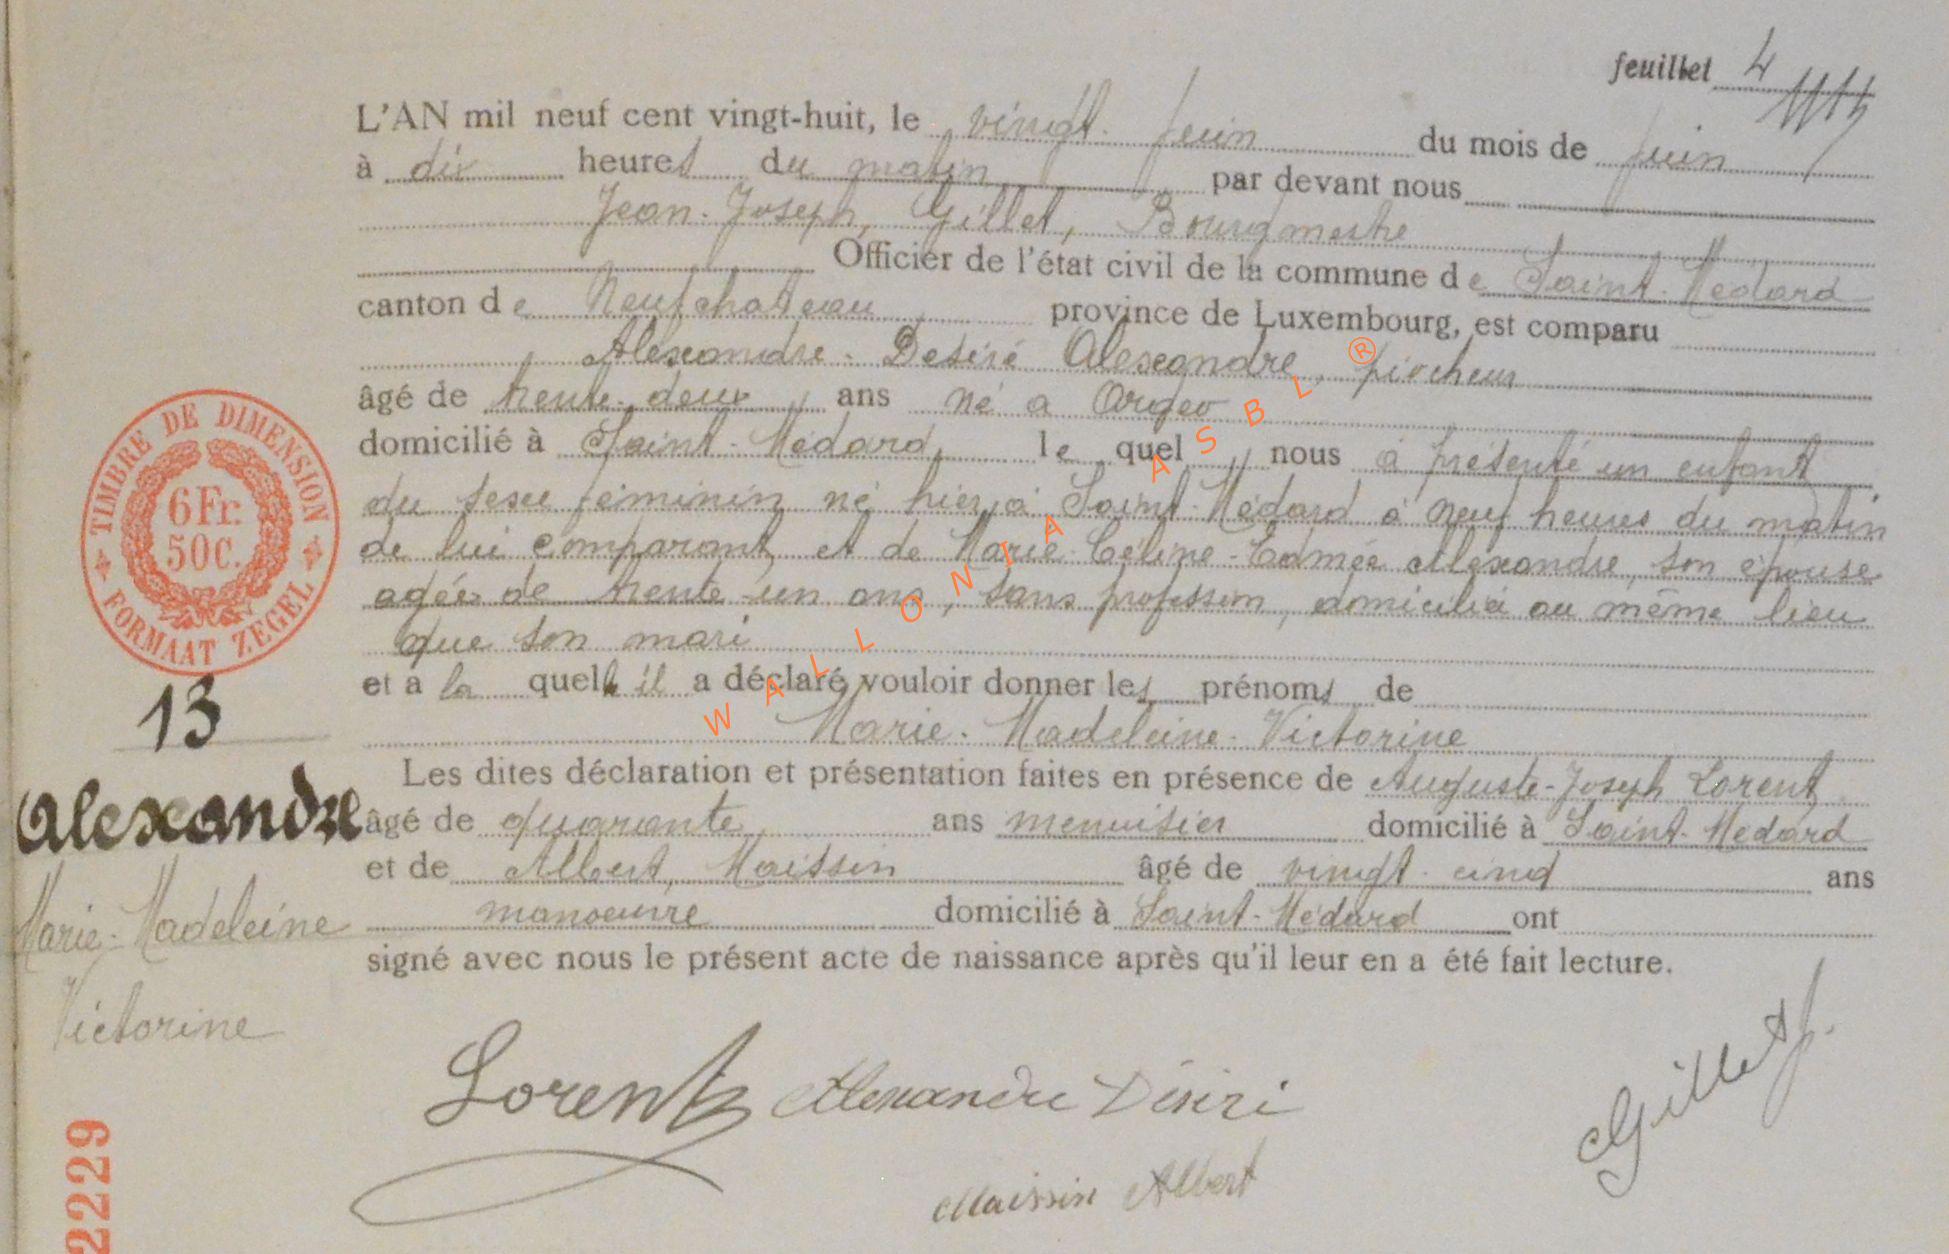 feuillet 4
L'AN mil neuf cent vingt-huit, le vingt Juin du mois de Juin
à dix heures du matin par devant nous
Jean-Joseph, Gillet, Bourgmestre
Officier de l'état civil de la commune de Saint-Médard
canton de Neufchateau province de Luxembourg, est comparu
Alexandre-Desiré Alexandre, piocheur
âgé de trente-deux ans né à Orgeo
domicilié à Saint-Médard, le quel nous a présenté un enfant
du sexe féminin né hier, à Saint-Médard à neuf heures du matin
de lui comparant, et de Marie-Céline-Edmée Alexandre, son épouse
agée de trente-un ans, sans profession, domicilié au même lieu
que son mari
et a la quelle il a déclaré vouloir donner les prénoms de
Marie-Madeleine-Victorine
Les dites déclaration et présentation faites en présence de Auguste-Joseph Lorent,
âgé de quarante, ans menuisier domicilié à Saint-Médard
et de Albert, Maissin âgé de vingt-cinq ans
manoeuvre domicilié à Saint-Médard ont
signé avec nous le présent acte de naissance après qu'il leur en a été fait lecture.
TIMBRE DE DIMENSION
6Fr.
50C.
FORMAAT ZEGEL
13
Alexandre
Marie-Madeleine
Victorine
2229
Lorent Alexandre Désiré
Gillet J.
Maissin Albert
WALLONIA ASBL ®